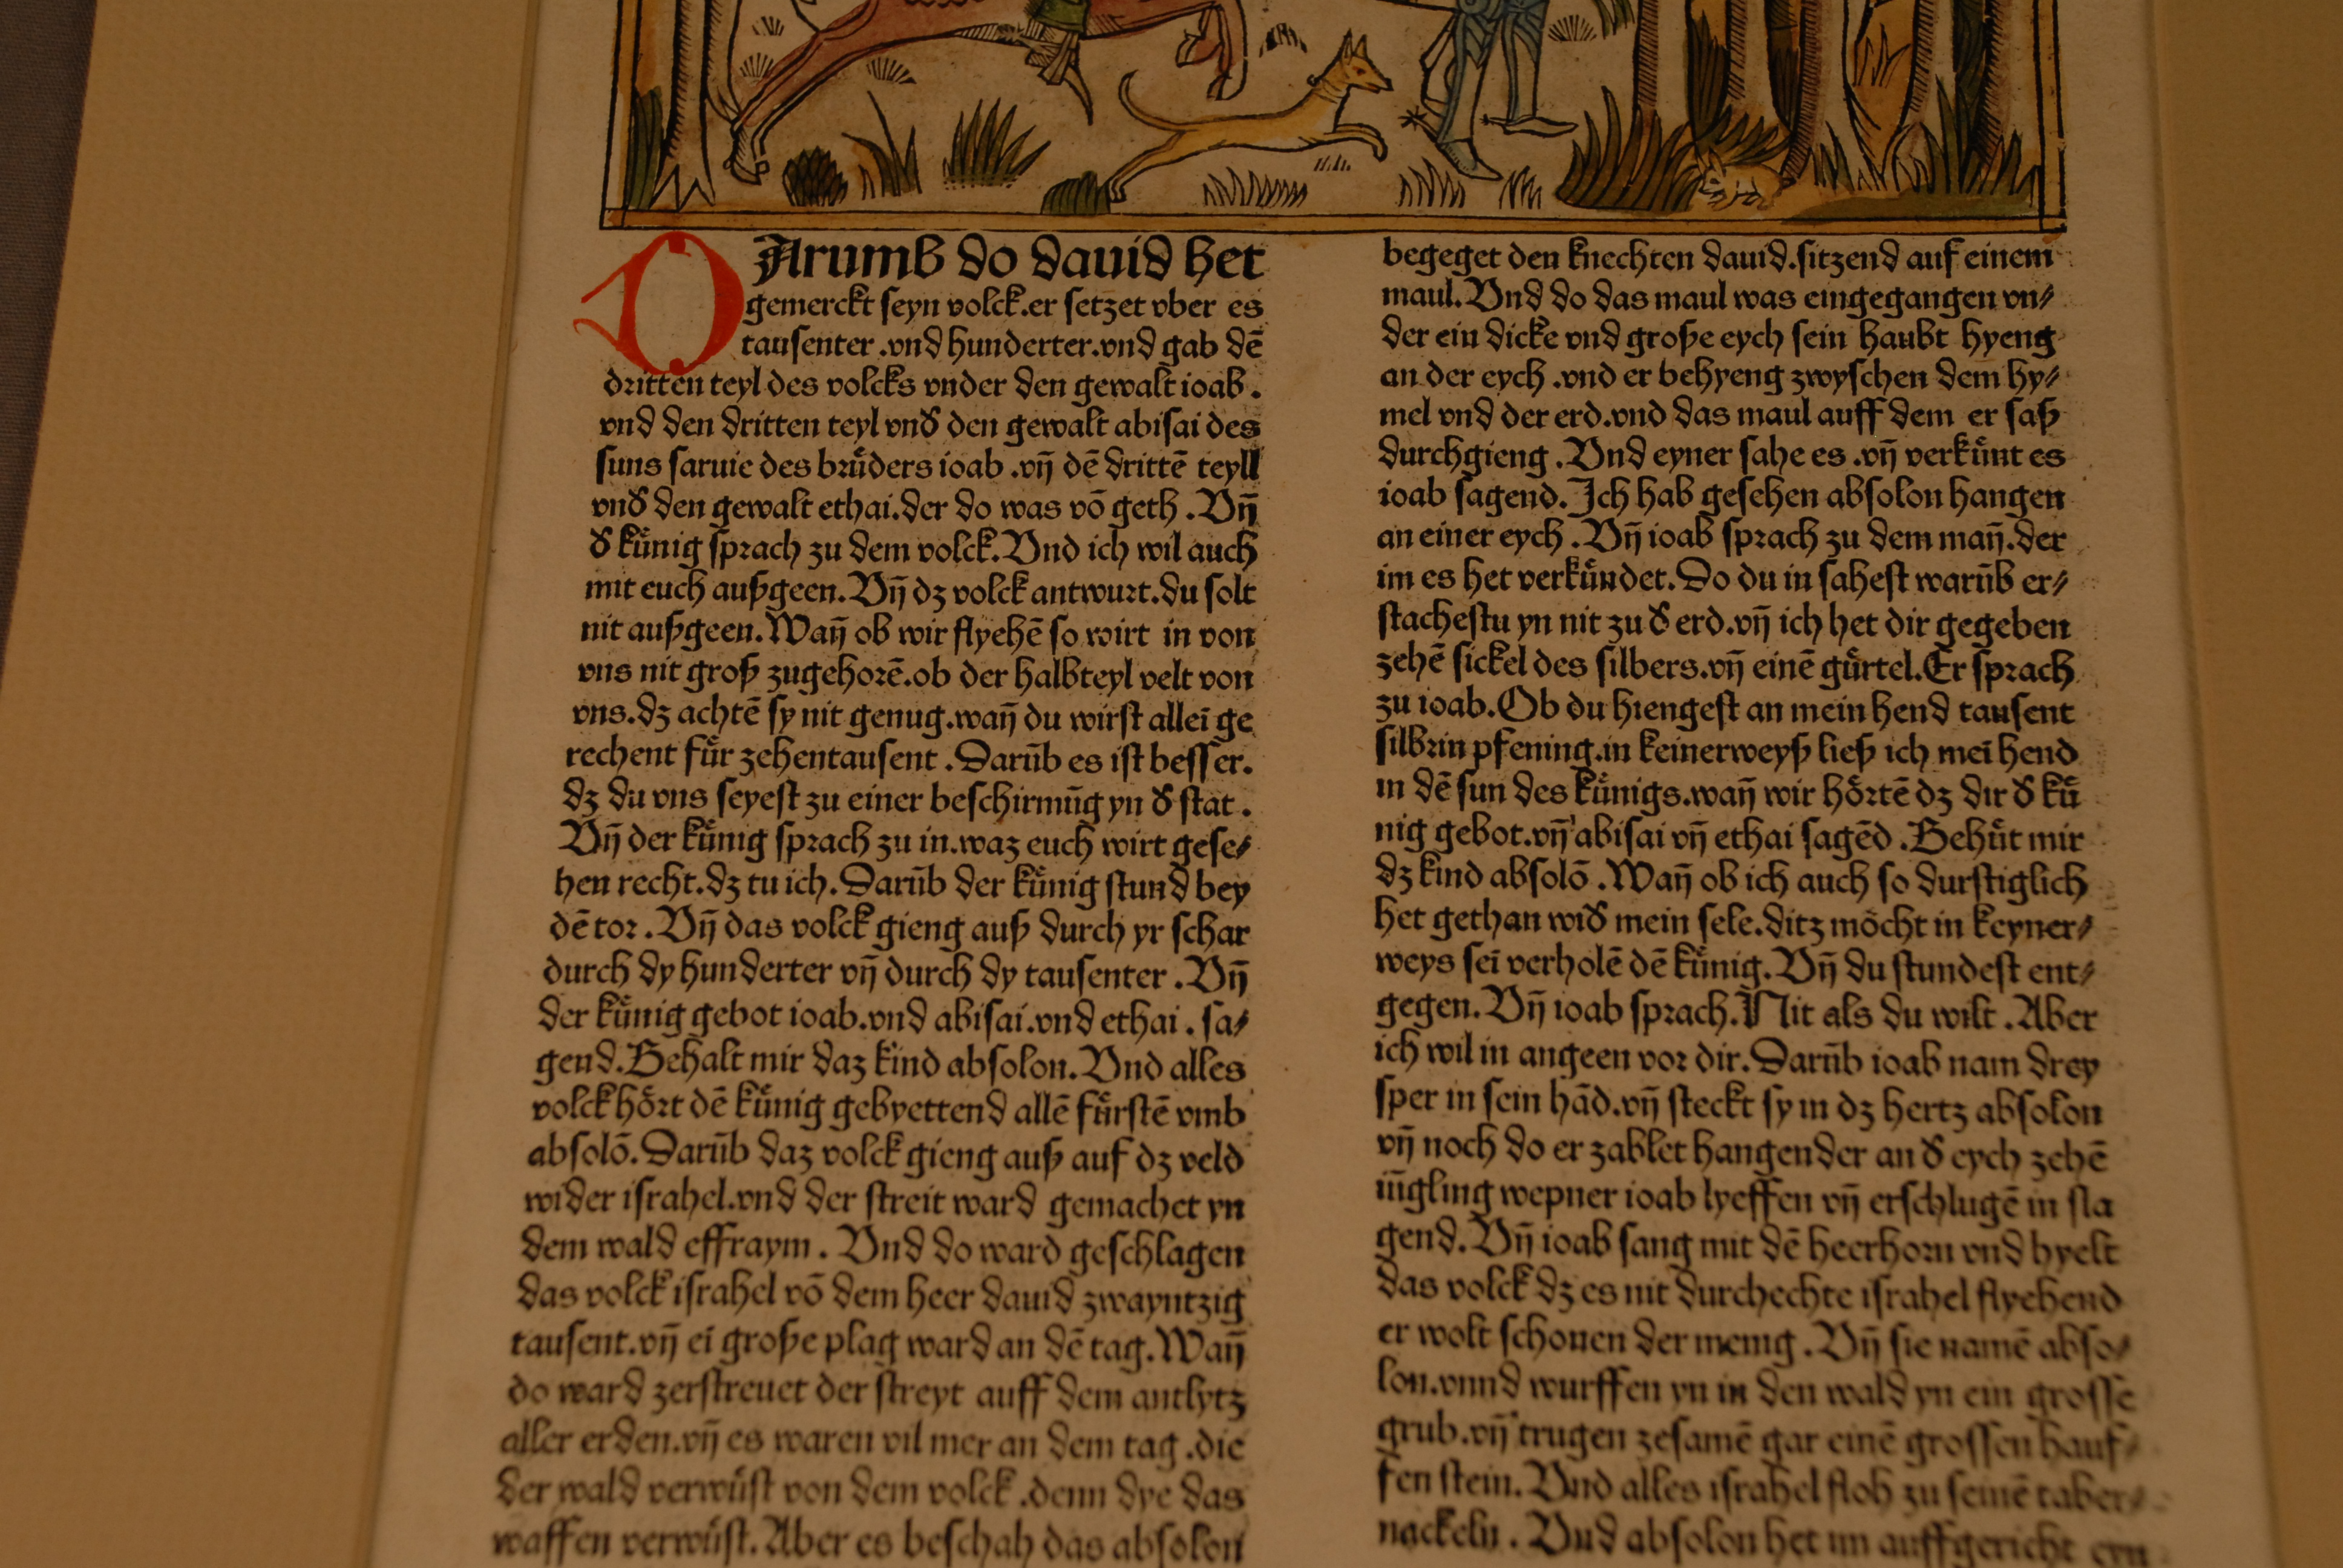 DArumb do dauid het
gemerckt seyn volck.er setzet vber es
tausenter .vnd hunderter.vnd gab dē
dritten teyl des volcks vnder den gewalt ioab .
vnd den dritten teyl vnď den gewalt abisai des
suns saruie des brůders ioab .vñ dē drittē teyll
vnď den gewalt ethai.der do was vō geth . Vñ
ď kůnig sprach zu dem volck.Vnd ich wil auch
mit euch außgeen. Vñ dz volck antwurt.du solt
nit außgeen. Wañ ob wir flyehē so wirt in von
vns nit groß zugehorē.ob der halbteyl velt von
vns.dz achtē sy nit genug.wañ du wirst alleī ge
rechent fůr zehentausent . Darūb es ist besser.
dz du vns seyest zu einer beschirmūg yn ď stat .
Vñ der kůnig sprach zu in.waz euch wirt gese⸗
hen recht.dz tu ich. Darūb der kůnig stund bey
dē tor . Vñ das volck gieng auß durch yr schar
durch dy hunderter vñ durch dy tausenter . Vñ
der kůnig gebot ioab.vnd abisai.vnd ethai . sa⸗
gend. Behalt mir daz kind absolon. Vnd alles
volck hoͤrt dē kůnig gebyettend allē fůrstē vmb
absolō. Darūb daz volck gieng auß auf dz veld
wider israhel.vnd der streit ward gemachet yn
dem wald effraym . Vnd do ward geschlagen
das volck israhel vō dem heer dauid zwayntzig
tausent.vñ ei große plag ward an dē tag. Wañ
do ward zerstreuet der streyt auff dem antlytz
aller erden.vñ es waren vil mer an dem tag .die
der wald verwůst von dem volck .denn dye das
waffen verwůst. Aber es beschah das absolon
begeget den knechten dauid.sitzend auf einem
maul. Vnd do das maul was eingegangen vn⸗
der ein dicke vnd große eych sein haubt hyeng
an der eych .vnd er behyeng zwyschen dem hy⸗
mel vnd der erd.vnd das maul auff dem er saß
durchgieng . Vnd eyner sahe es .vñ verkůnt es
ioab sagend. Ich hab gesehen absolon hangen
an einer eych . Vñ ioab sprach zu dem mañ.der
im es het verkůndet. Do du in sahest warūb er⸗
stachestu yn nit zu ď erd.vñ ich het dir gegeben
zehē sickel des silbers.vñ einē gůrtel. Er sprach
zu ioab. Ob du hiengest an mein hend tausent
silbrin pfening.in keinerweyß ließ ich meī hend
in dē sun des kůnigs.wañ wir hoͤrtē dz dir ď ků
nig gebot.vñ abisai vñ ethai sagēd . Behůt mir
dz kind absolō . Wañ ob ich auch so durstiglich
het gethan wiď mein sele.ditz moͤcht in keyner⸗
weys seī verholē dē kůnig. Vñ du stundest ent⸗
gegen. Vñ ioab sprach. Nit als du wilt . Aber
ich wil in angeen vor dir. Darūb ioab nam drey
sper in sein hād.vñ steckt sy in dz hertz absolon
vñ noch do er zablet hangender an ď eych zehē
iūgling wepner ioab lyeffen vñ erschlugē in sla
gend. Vñ ioab sang mit dē heerhorn vnd hyelt
das volck dz es nit durchechte israhel flyehend
er wolt schonen der menig . Vñ sie namē abso⸗
lon.vnnd wurffen yn in den wald yn ein grosse
grub.vñ trugen zesamē gar einē grossen hauf⸗
fen stein. Vnd alles israhel floh zu seinē taber⸗
nackeln . Vnd absolon het im auffgericht eyn